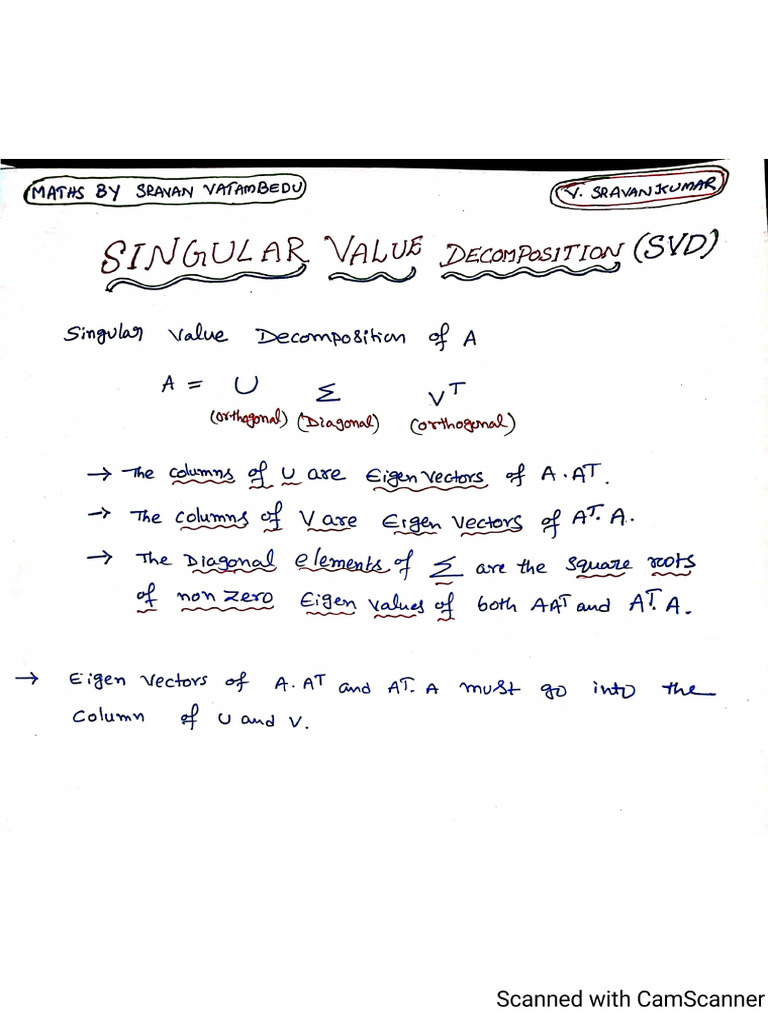 MATHS BY SRAVAN VATAMBEDU
V. SRAVANKUMAR
SINGULAR VALUE DECOMPOSITION (SVD)
Singular Value Decomposition of A
A = U Σ Vᵀ
(orthogonal) (Diagonal) (orthogonal)
→ The columns of U are Eigen vectors of A.Aᵀ.
→ The columns of V are Eigen vectors of Aᵀ.A.
→ The Diagonal elements of Σ are the square roots
of non zero Eigen values of both AAᵀ and Aᵀ.A.
→ Eigen vectors of A.Aᵀ and Aᵀ.A must go into the
column of U and V.
Scanned with CamScanner